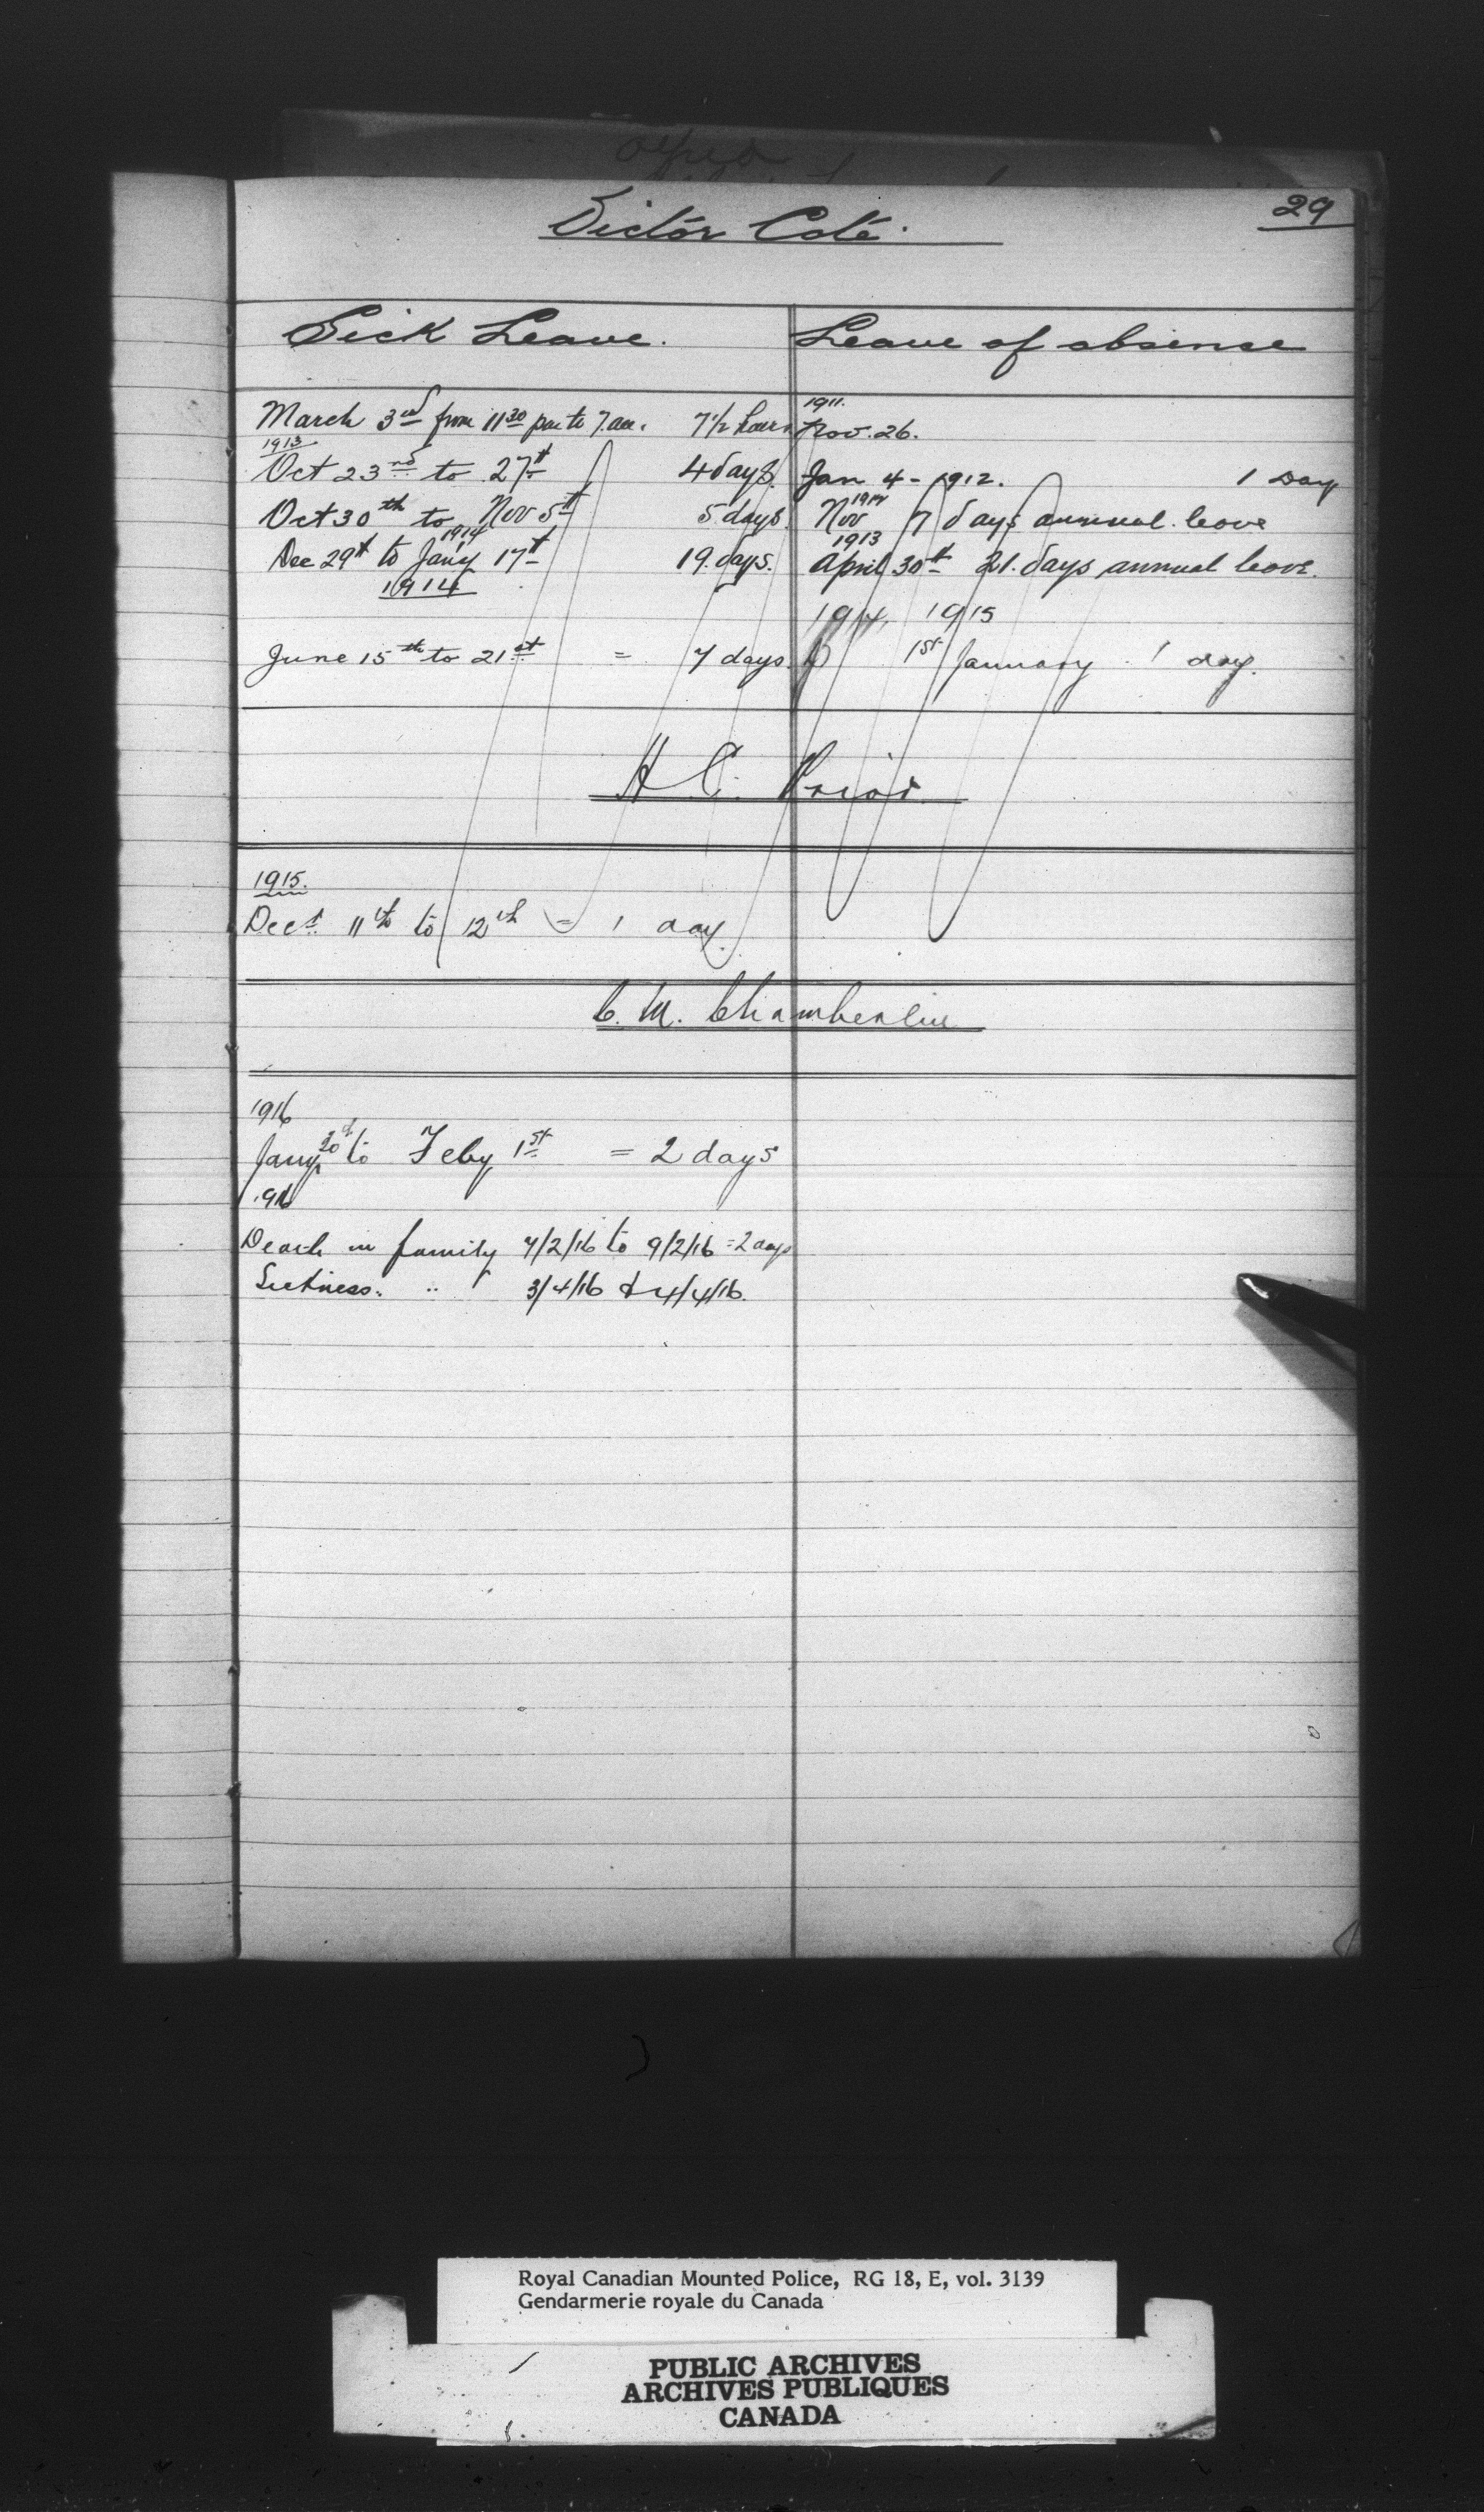 29
Victor Coté.
Sick Leave.
March 3rd from 11 30 pm to 7. am. 7 1/2 hours
1913
Oct 23rd to 27th 4 days.
Oct 30th to Nov 5th 5 days.
1914
Dec 29th to Jan'y 17th 19. days.
1914
June 15th to 21st = 7 days
Leave of absence
1911.
Nov. 26.
Jan 4 - 1912. 1 Day
1912
Nov 7 days annual leave
1913
April 30th 21. days annual leave.
1914, 1915
1st January 1 day.
H. C. Prior
1915.
Decr 11th to 12th = 1 day.
C. M. Chamberlin
1916
Jany 30th to Feby 1st = 2 days
1916
Death in family 7/2/16 to 9/2/16 = 2 days
Sickness. " 3/4/16 & 4/4/16.
Royal Canadian Mounted Police, RG 18, E, vol. 3139
Gendarmerie royale du Canada
PUBLIC ARCHIVES
ARCHIVES PUBLIQUES
CANADA